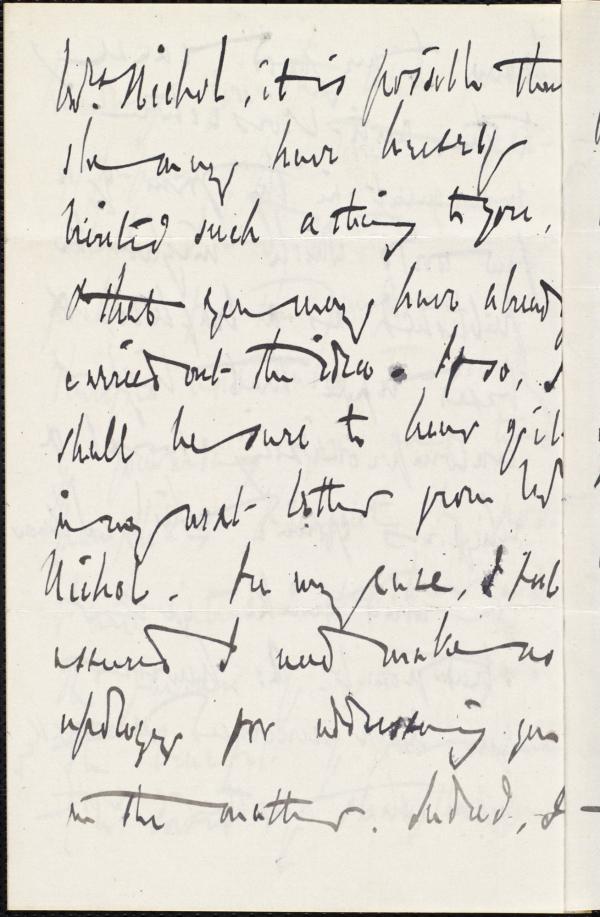 Mrs. Nichol, it is possible that
she may have herself
hinted such a thing to you,
& that you may have already
carried out the idea. If so, I
shall be sure to hear of it
in my next letter from Mrs.
Nichol. In any case, I feel
assured I need make no
apology for addressing you
in the matter. Indeed, I